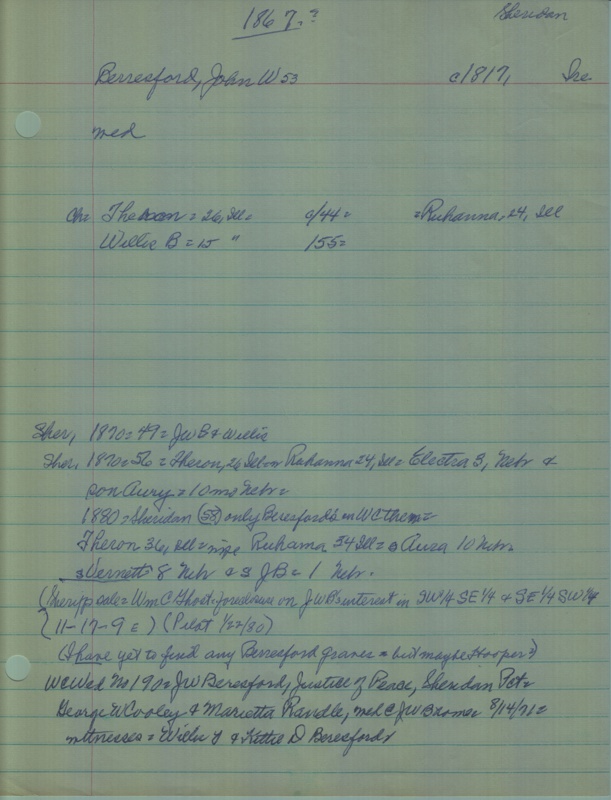 1867.? Sheridan
Berresford, John W 53 c1817, Ire.
med
Ch= Theroon = 26, Ill= c/44= =Ruhanna, 24, Ill
Willis B = 15 " /55=
Sher, 1870=49= JWB & Willis
Sher, 1870=56 = Theron, 26 Ruhanna 24, Ill= Electra 3, Nebr &
son Aury = 10 mo Nebr=
1880=Sheridan only Beresfords in WC them=
Theron 36, Ill= Ruhama 34 Ill= Auza 10 Nebr.
Vernett 8 Nebr & s JB = 1 Nebr.
Sale= Wm C Ghost. on JWB interest in SW 1/4 SE 1/4 & SE 1/4 SW 1/4
11-17-9 E) (Pilot 1/22/80)
(I have yet to find any Berresford graves = but maybe Hooper?)
WC Wed No 190= JW Beresford, Justice of Peace, Sheridan Pct=
George W Cooley & Marietta Randle, med @ JWB home 8/14/71=
witnesses = Willis & Kittie D Beresford